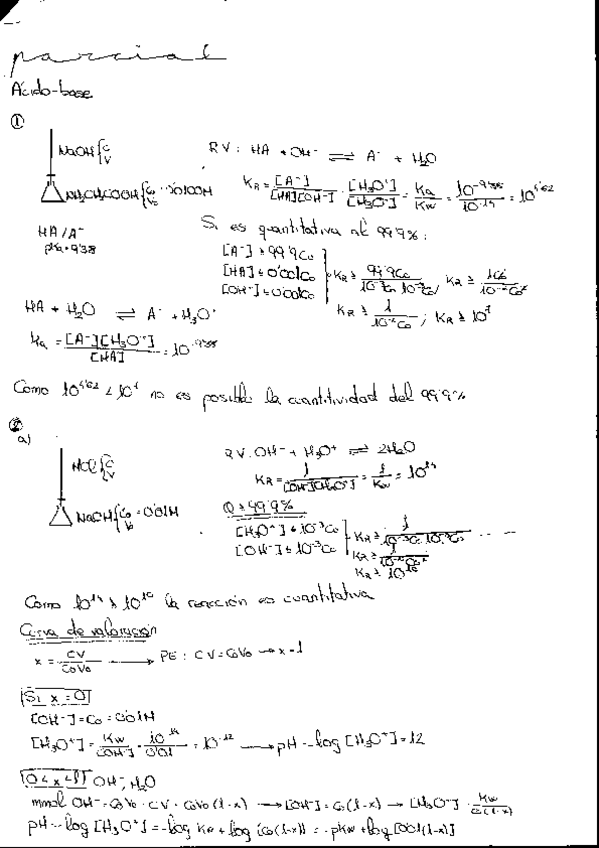 parcial
Ácido-base
①
NaOH{C V
RV: HA + OH⁻ ⇌ A⁻ + H₂O
NH₂CH₂COOH{C₀ V₀
K_R = [A⁻]/[HA][OH⁻] · [H₃O⁺]/[H₃O⁺] = Ka/Kw = 10^-9'38/10^-14 = 10^4'62
HA/A⁻
pKa=9'38
Si es quantitativa al 99'9%:
[A⁻] ≥ 99'9C₀
[HA] ≤ 0'001C₀
[OH⁻] ≤ 0'001C₀
HA + H₂O ⇌ A⁻ + H₃O⁺
Ka = [A⁻][H₃O⁺]/[HA] = 10^-9'38
Como 10^4'62 < 10^7 no es posible la cuantitividad del 99'9%
②
a)
HCl{C V
NaOH{C₀=0'01M V₀
RV: OH⁻ + H₃O⁺ ⇌ 2H₂O
K_R = 1/[OH⁻][H₃O⁺] = 1/Kw = 10^14
Q ≥ 99'9%
[H₃O⁺] ≤ 10⁻³C₀
[OH⁻] ≤ 10⁻³C₀
K_R ≥ 1/10⁻³C₀·10⁻³C₀
K_R ≥ 10^10
Como 10^14 > 10^10 la reacción es cuantitativa
Curva de valoración
x = CV/C₀V₀ → PE: CV=C₀V₀ → x=1
Si x=0
[OH⁻]=C₀=0'01M
[H₃O⁺]=Kw/[OH⁻]=10^-14/0'01=10^-12 → pH=-log[H₃O⁺]=12
0<x<1 OH⁻, H₂O
mmol OH⁻=C₀V₀-CV=C₀V₀(1-x) → [OH⁻]=C₀(1-x) → [H₃O⁺]=Kw/C₀(1-x)
pH=-log[H₃O⁺]=-log Kw+log(C₀(1-x))=-pKw+log[0'01(1-x)]